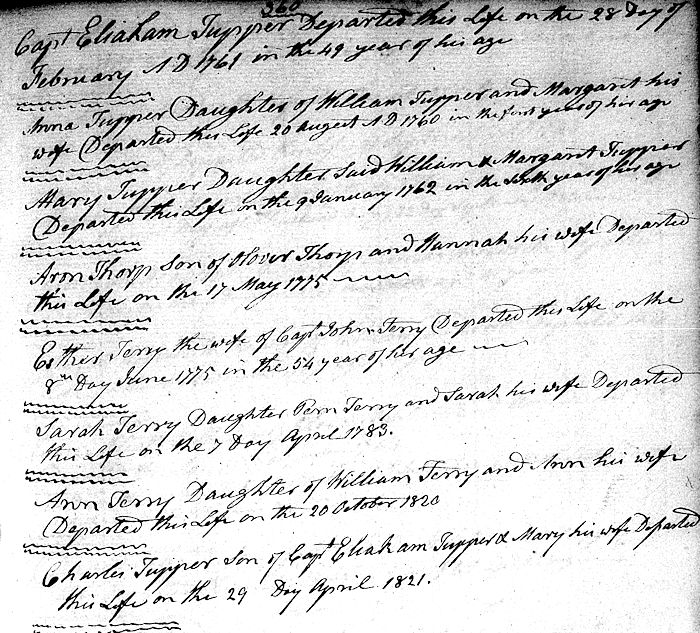 360
Capt Eliakam Tupper Departed this Life on the 28 Day of
February A D 1761 in the 49 year of his age
Anna Tupper Daughter of William Tupper and Margaret his
wife Departed this Life 20 August A D 1760 in the first year of his age
Mary Tupper Daughter Said William & Margaret Tupper
Departed this Life on the 9 January 1762 in the Sixth year of his age
Aron Thorp Son of Oliver Thorp and Hannah his wife Departed
this Life on the 17 May 1775
Esther Terry the wife of Capt John Terry Departed this Life on the
8th Day June 1775 in the 54 year of her age
Sarah Terry Daughter Pern Terry and Sarah his wife Departed
this Life on the 7 Day April 1783.
Ann Terry Daughter of William Terry and Ann his wife
Departed this Life on the 20 October 1820
Charles Tupper Son of Capt Eliakam Tupper & Mary his wife Departed
this Life on the 29 Day April 1821.